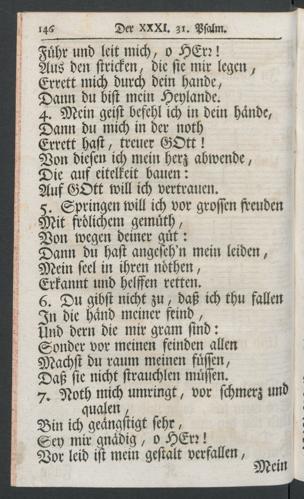 146 Der XXXI. 31. Psalm.
Führ und leit mich, o HErr!
Aus den stricken, die sie mir legen,
Errett mich durch dein hande,
Dann du bist mein Heylande.
4. Mein geist befehl ich in dein hände,
Dann du mich in der noth
Errett hast, treuer GOtt!
Von diesen ich mein herz abwende,
Die auf eitelkeit bauen:
Auf GOtt will ich vertrauen.
5. Springen will ich vor grossen freuden
Mit frölichem gemüth,
Von wegen deiner güt:
Dann du hast angeseh'n mein leiden,
Mein seel in ihren nöthen,
Erkannt und helffen retten.
6. Du gibst nicht zu, daß ich thu fallen
In die händ meiner feind,
Und dern die mir gram sind:
Sonder vor meinen feinden allen
Machst du raum meinen füssen,
Daß sie nicht strauchlen müssen.
7. Noth mich umringt, vor schmerz und
qualen,
Bin ich geängstigt sehr,
Sey mir gnädig, o HErr!
Vor leid ist mein gestalt verfallen,
Mein